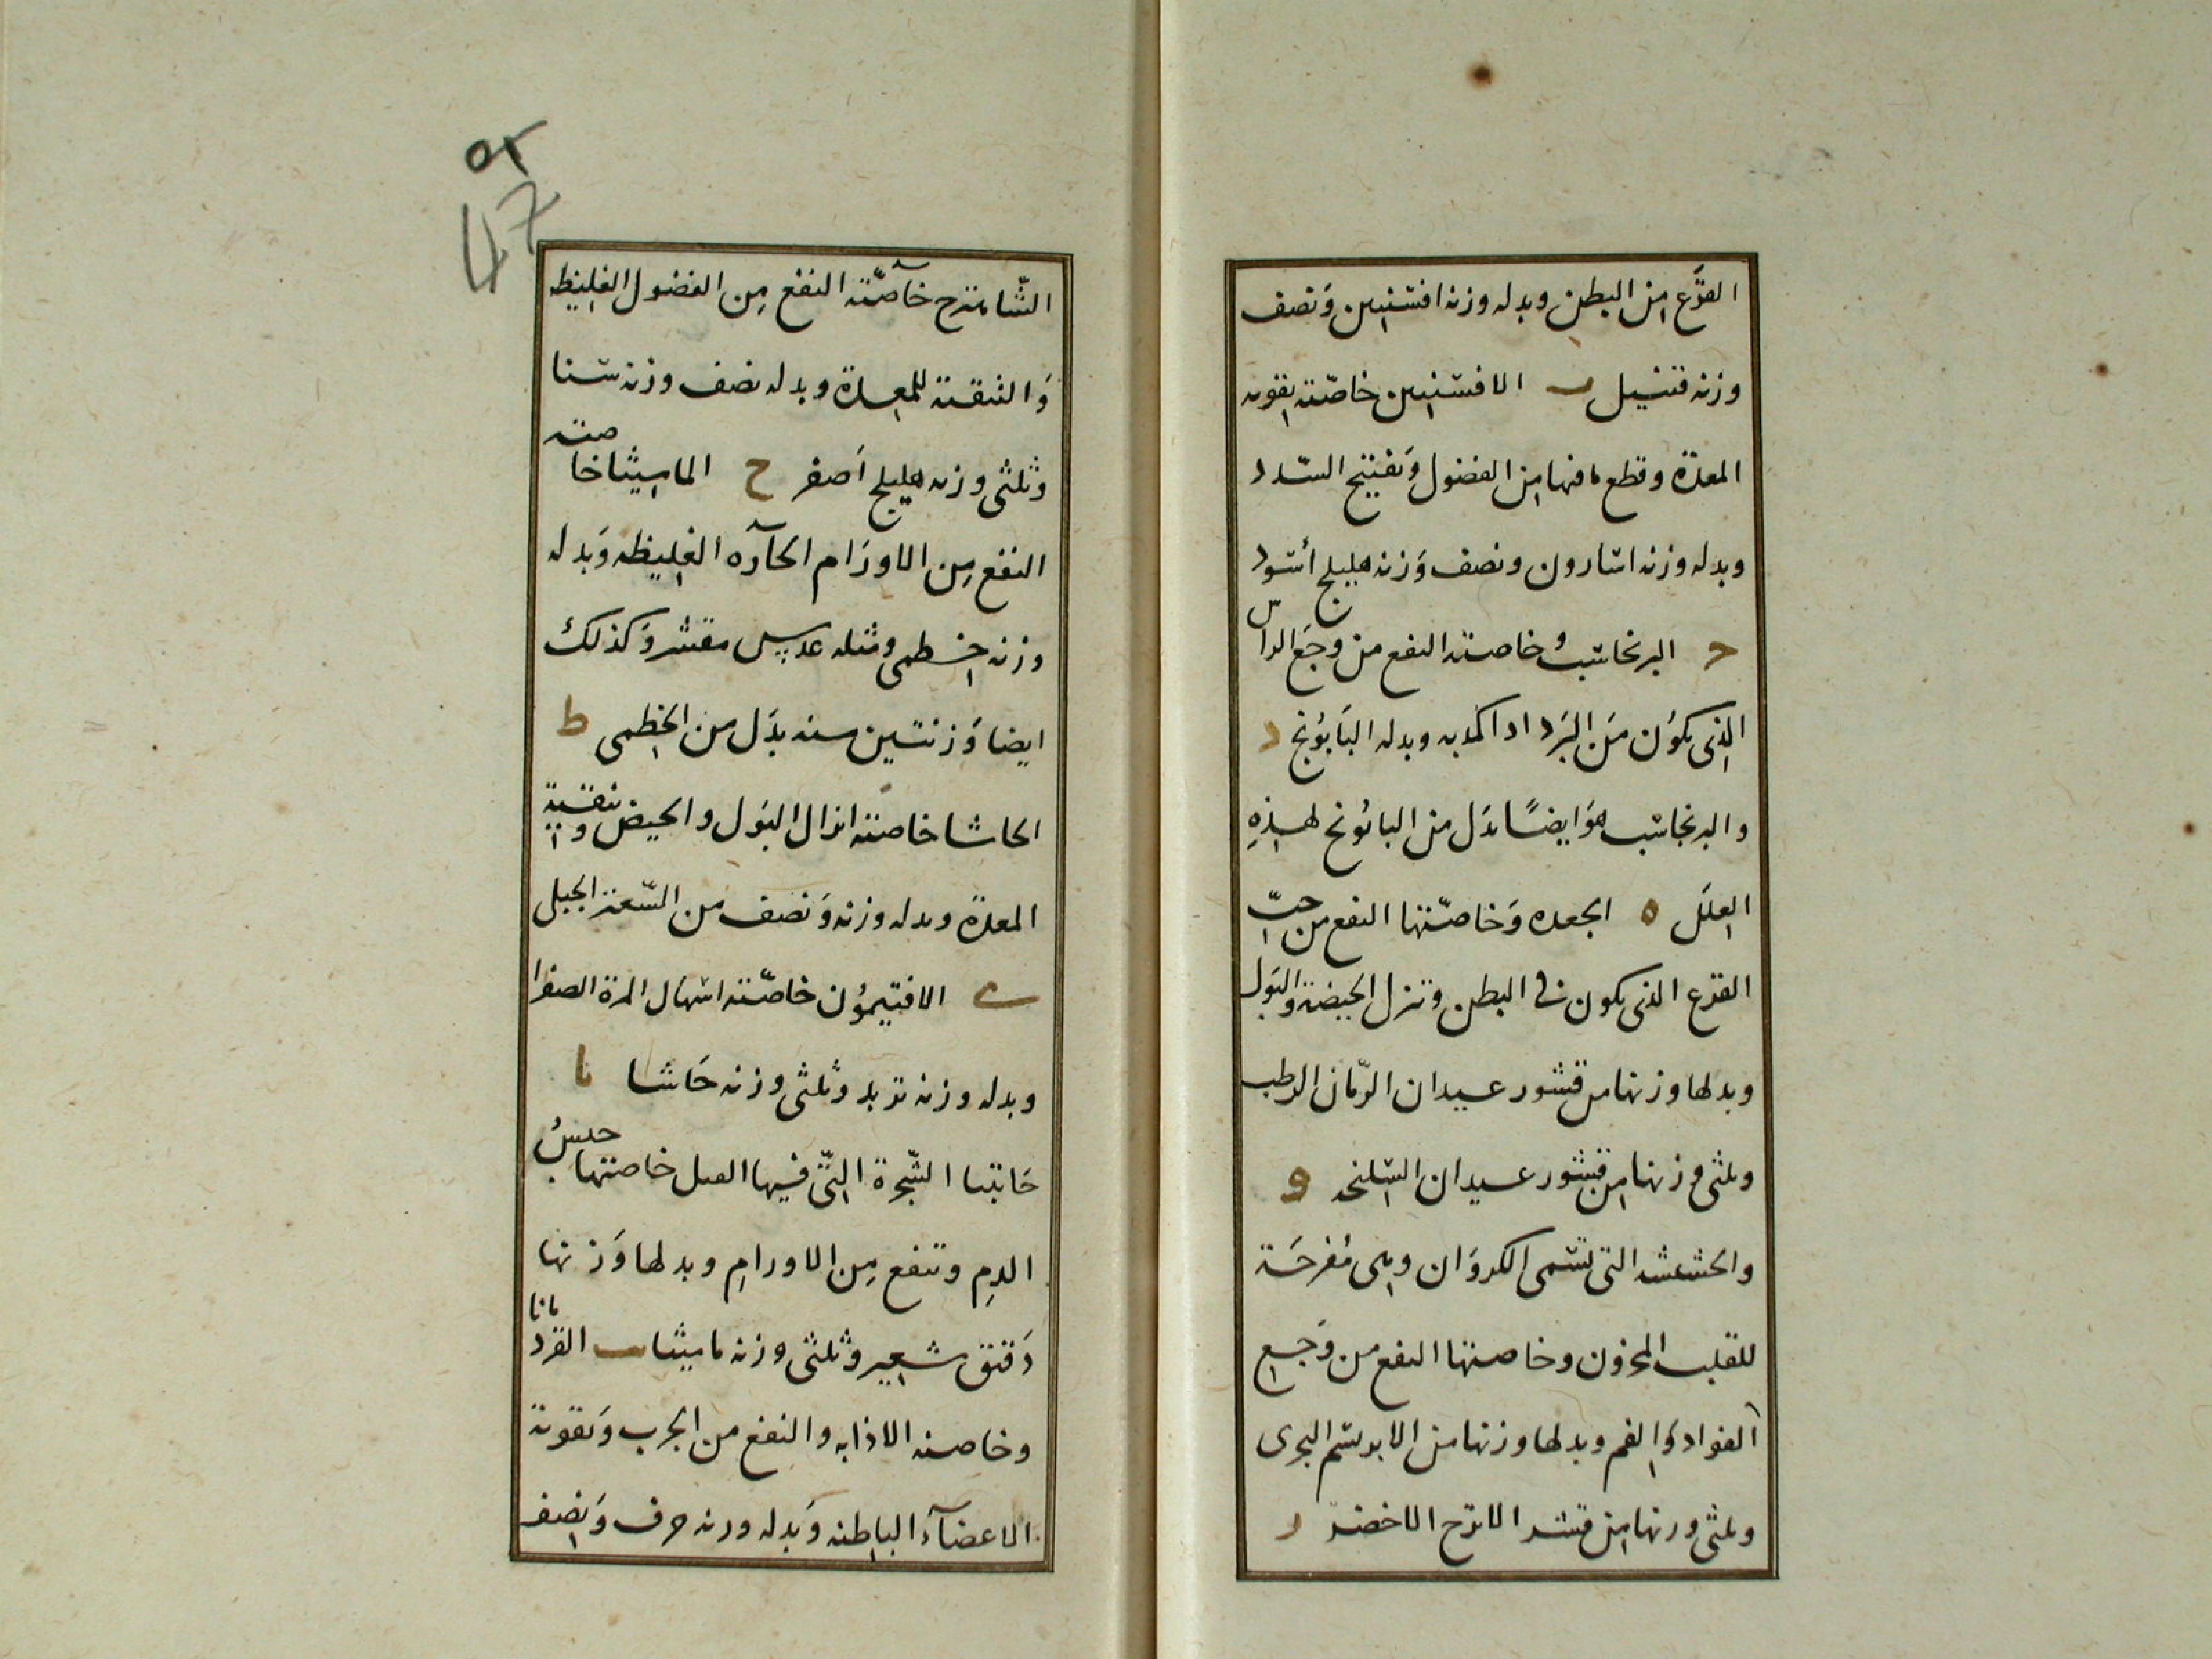 القرع من البطن وبدله وزنه افسنتين وَنصف
وزنه قنبيل ب الافسنتين خاصّته تقوية
المعدة وقطع ما فيها من الفضول وَتفتيح السّدد
وبدله وزنه اسارون ونصف وَزنه هليلج أسود
ح البرنجاسبُ خاصته النفع من وجَع الراس
الذى يكوُن مَن البَرد اذا كمد به وبدله البَابوُنج د
والبرنجاسب هوَ ايضًا بدَل من البابوُنج لهذِهِ
العِلَل ه الجعده وَخاصّتها النفع من حبّ
القرّع الذى يكون فى البطن وتنزل الحيضة والبَول
وبدلها وزنها من قشور عيدان الرّمان الرطب
وثلثى وزنها من قشور عيدان السليخه و
والحشيشه التى تسَمى الكروَان وهى مُفرحَة
للقلب المحزون وخاصتها النفع من وَجع
الفواد وَالفم وبدلها وزنها من الابريسم البحرى
وثلثى وزنها من قشر الاترج الاخضر ز
الشّاهترج خاصّته النفع مِن الفضول الغليظه
وَالتنقية للمعدة وبدله نصف وزنه سنا
وثلثى وزنه هليلج اَصفر ح الماميثا خاصته
النفع مِن الاورَام الحآرّه الغليظه وَبدله
وزنه خطمى ومثله عدس مقشر وَكذلك
ايضا وَزنتين منه بدَل من الخطمى ط
الحاشا خاصته انزال البَول والحيض وتنقية
المعدة وبدله وزنه وَنصف من السّعتر الجبلى
ى الافتيموُن خاصّته اسهال المرة الصفرا
وبدله وزنه تربد وثلثى وزنه حَاشا يا
الشّجرة التّى فيها العسل خاصتها حبسُ
الدمِ وتنفع مِن الاورامِ وبدلها وَزنها
دَقيق شعير وثلثى وزنه ماميثا يب القردمانا
وخاصته الاذابه والنفع من الجرب وَتقوية
الاعضآء الباطنه وَبدله وزنه حرف وَنصف
٥٢
47